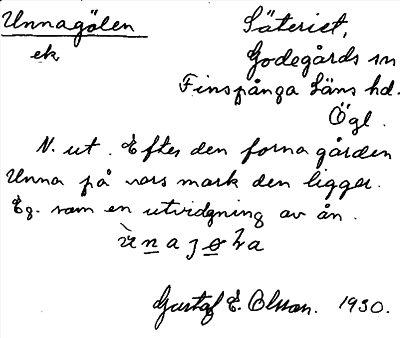 Unnagölen Säteriet,
ek Godegårds sn
Finspånga Läns hd.
Ögl.
N. ut. Efter den forna gården
Unna på vars mark den ligger.
Eg. som en utvidgning av ån.
Gustaf E. Olsson. 1930.